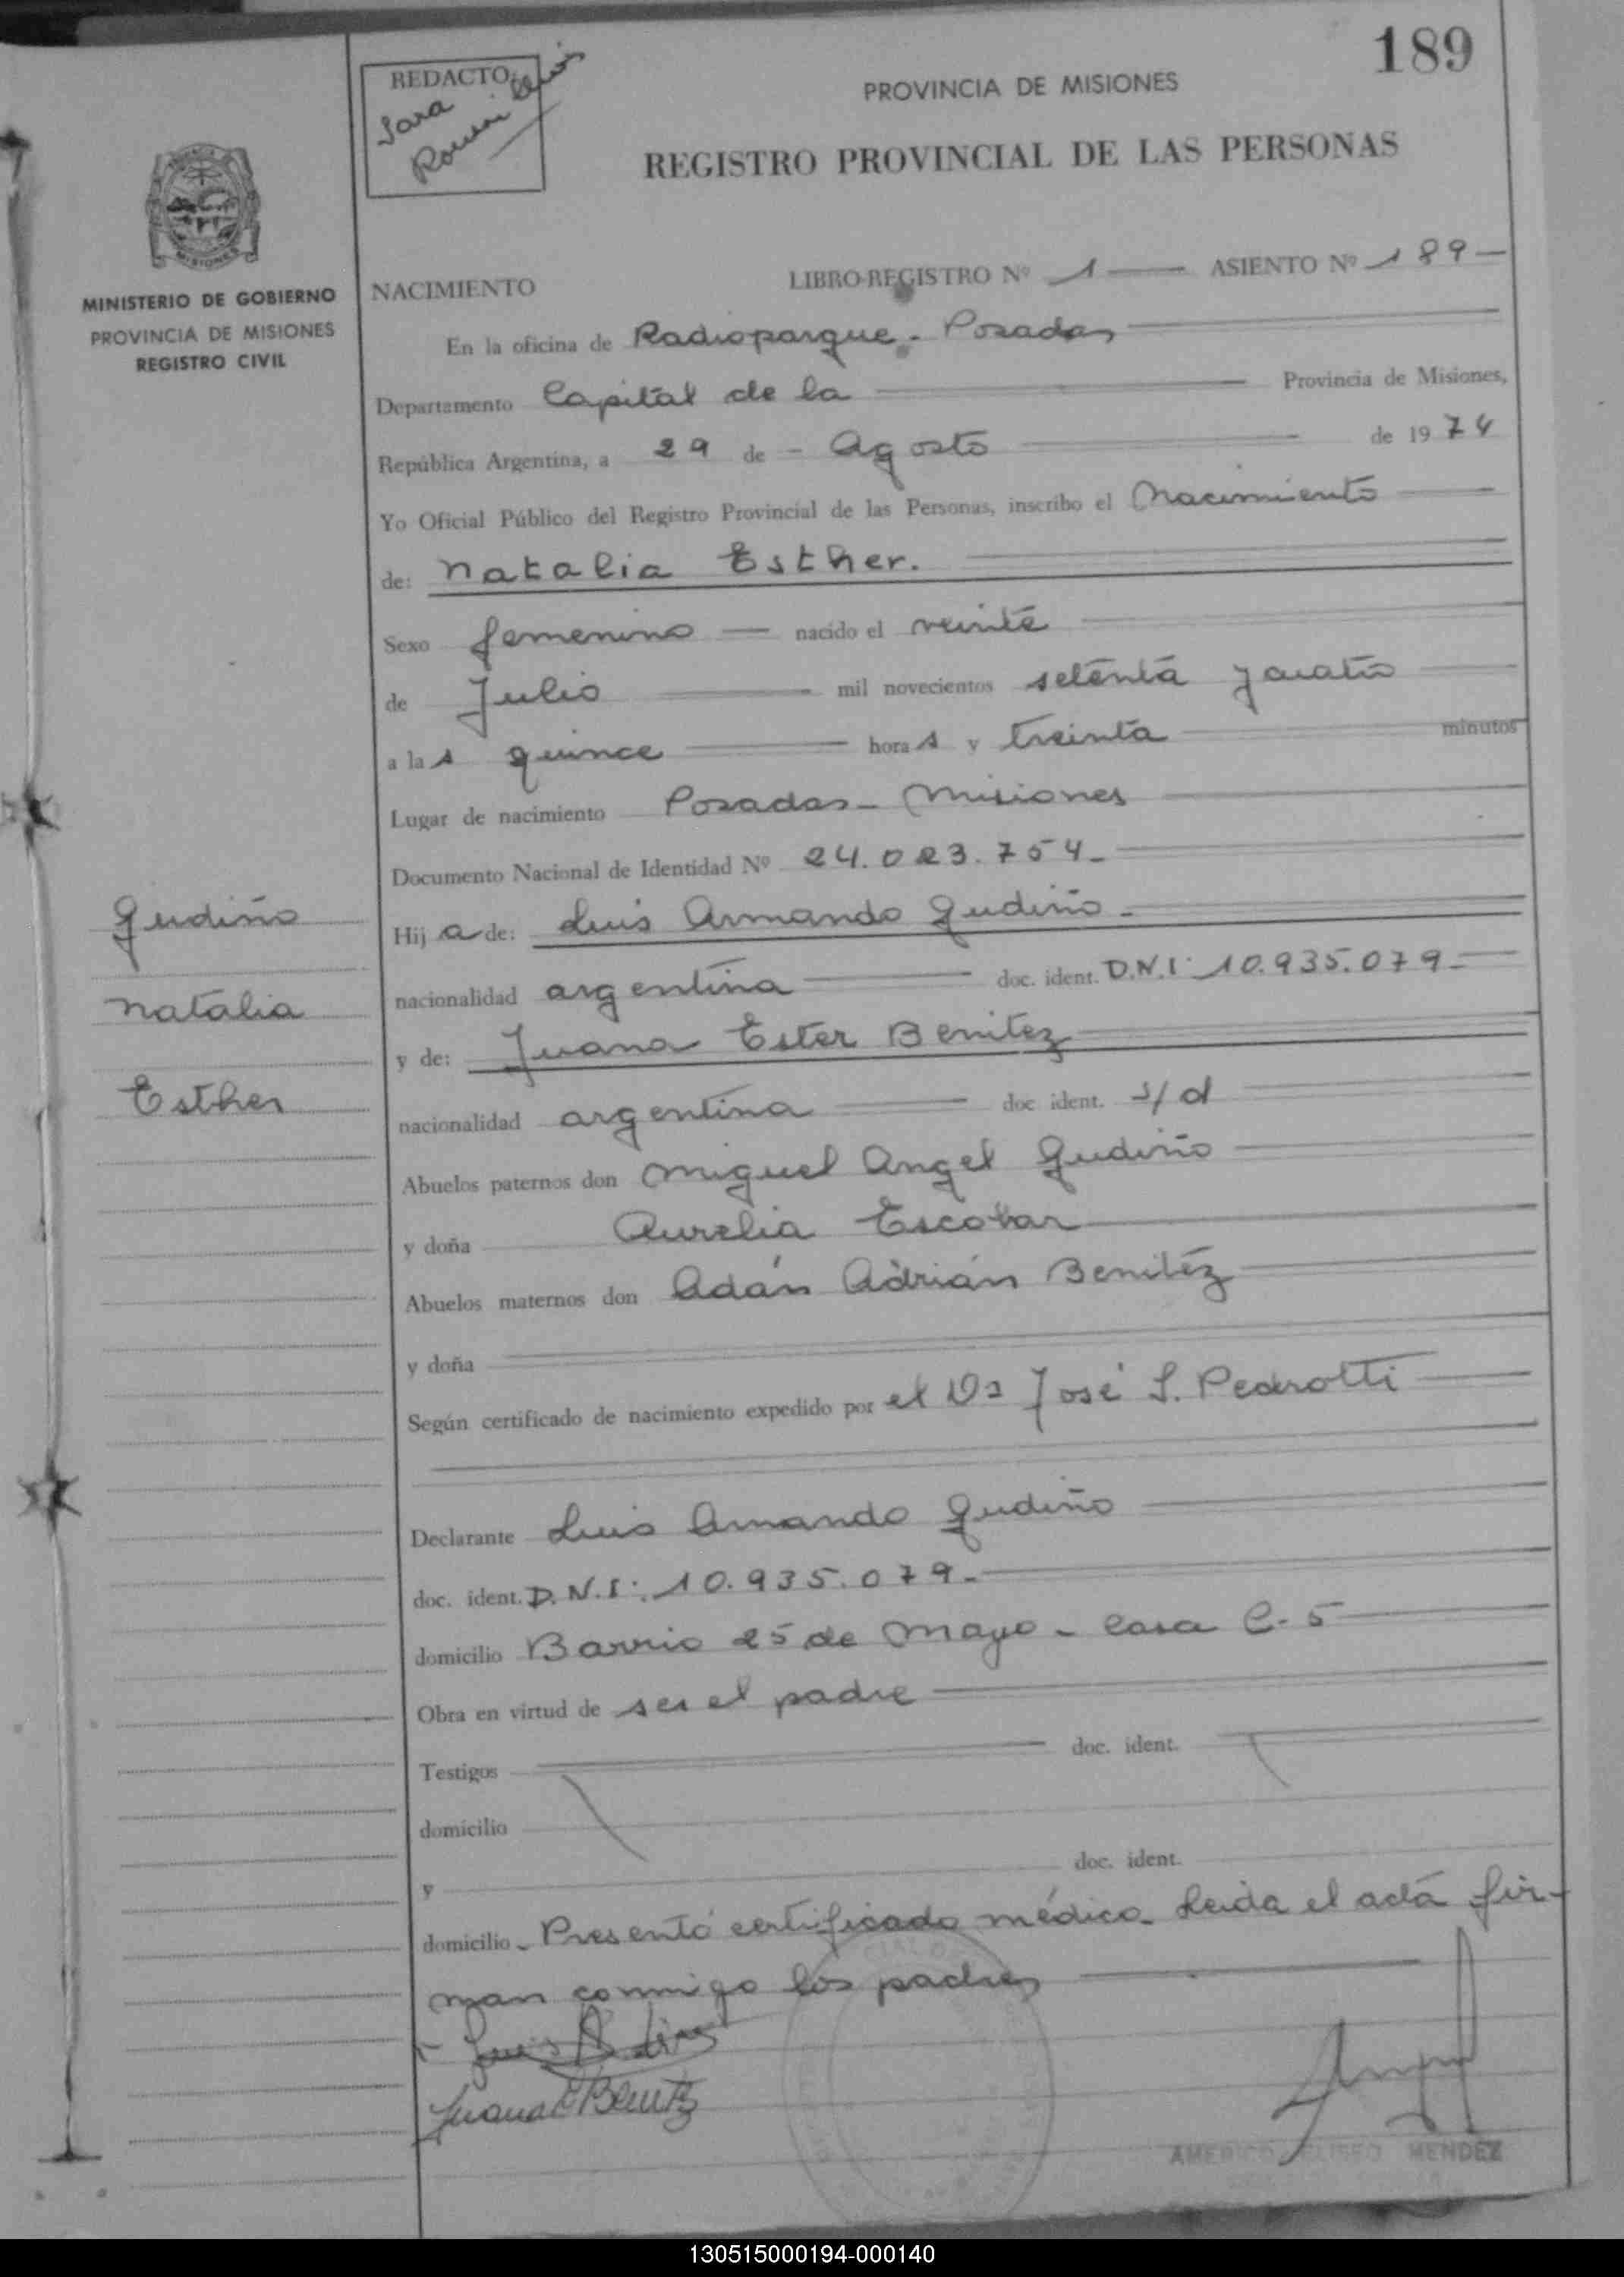 189
REDACTO
Sara
PROVINCIA DE MISIONES
REGISTRO PROVINCIAL DE LAS PERSONAS
MISIONES
MINISTERIO DE GOBIERNO
PROVINCIA DE MISIONES
REGISTRO CIVIL
NACIMIENTO LIBRO-REGISTRO Nº 1 — ASIENTO Nº 189 —
En la oficina de Radioparque - Posadas
Departamento Capital de la Provincia de Misiones,
República Argentina, a 29 de - Agosto de 1974
Yo Oficial Público del Registro Provincial de las Personas, inscribo el Nacimiento
de: Natalia Esther.
Sexo femenino — nacido el veinte
de Julio — mil novecientos setenta y cuatro
a las quince — horas y treinta minutos
Lugar de nacimiento Posadas - Misiones
Documento Nacional de Identidad Nº 24.023.754-
Gudiño
Hija de: Luis Armando Gudiño -
nacionalidad argentina — doc. ident. D.N.I: 10.935.079-
Natalia
y de: Juana Ester Benitez
Esther
nacionalidad argentina — doc ident. s/d
Abuelos paternos don Miguel Angel Gudiño
y doña Aurelia Escobar
Abuelos maternos don Adán Adrián Benitéz
y doña
Según certificado de nacimiento expedido por el Dr José S. Pedrotti
Declarante Luis Armando Gudiño
doc. ident. D.N.I: 10.935.079-
domicilio Barrio 25 de Mayo - Casa C-5
Obra en virtud de ser el padre
Testigos doc. ident.
domicilio
y doc. ident.
domicilio - Presentó certificado médico - Leida el actá fir-
man conmigo los padres
Juana E Benitz
AMERICO ELISEO MENDEZ
130515000194-000140